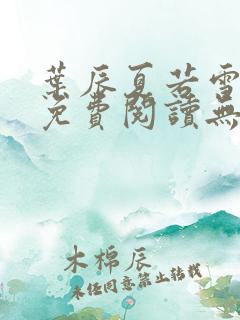 葉辰夏若雪
免費閱讀無
木棉辰
未经同意禁止转载